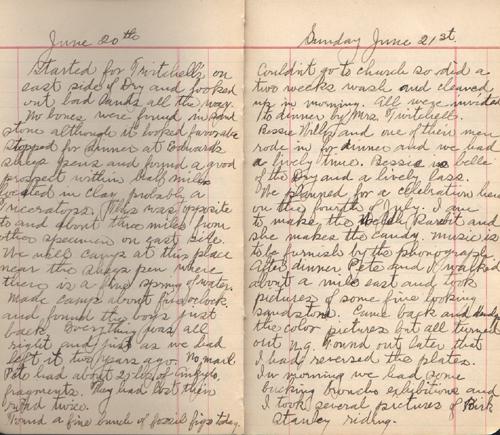 June 20th
Started for Twitchell's on
east side of Dry and looked
out bad lands all the way.
No bones were found in sand
stone although it looked favorable
Stopped for dinner at Edwards
sheep pens and found a good
prospect within half mile
located in clay probably a
Triceratops. This was opposite
to and about three miles from
other specimen on east side.
We will camp at this place
near the sheep pen where
there is a fine spring of water.
Made camp about five o'clock
and found the boys just
back. Everything was all
right and just as we had
left it two years ago. No mail.
Pete had about 25 lbs of
fragments. They had lost their
twice.
Found a fine bunch of fossil figs today.
Sunday June 21st.
Couldn't go to church so did a
two weeks wash and cleaned
up in morning. All were invited
to dinner by Mrs. Twitchell.
Bessie Wills and one of their men
rode in for dinner and we had
a lively time. Bessie is belle
of the Dry and a lively lass.
We planned for a celebration here
on the fourth of July. I am
to make the Welch Rarebit and
she makes the candy. Music is
to be furnish by the phonograph.
After dinner Pete and I walked
about a mile east and took
pictures of some fine looking
sandstone. Came back and
the color pictures but all turned
out n.g. Found out later that
I had reversed the plates.
In morning we had some
bucking broncho exhibitions and
I took several pictures of
Stanley riding.